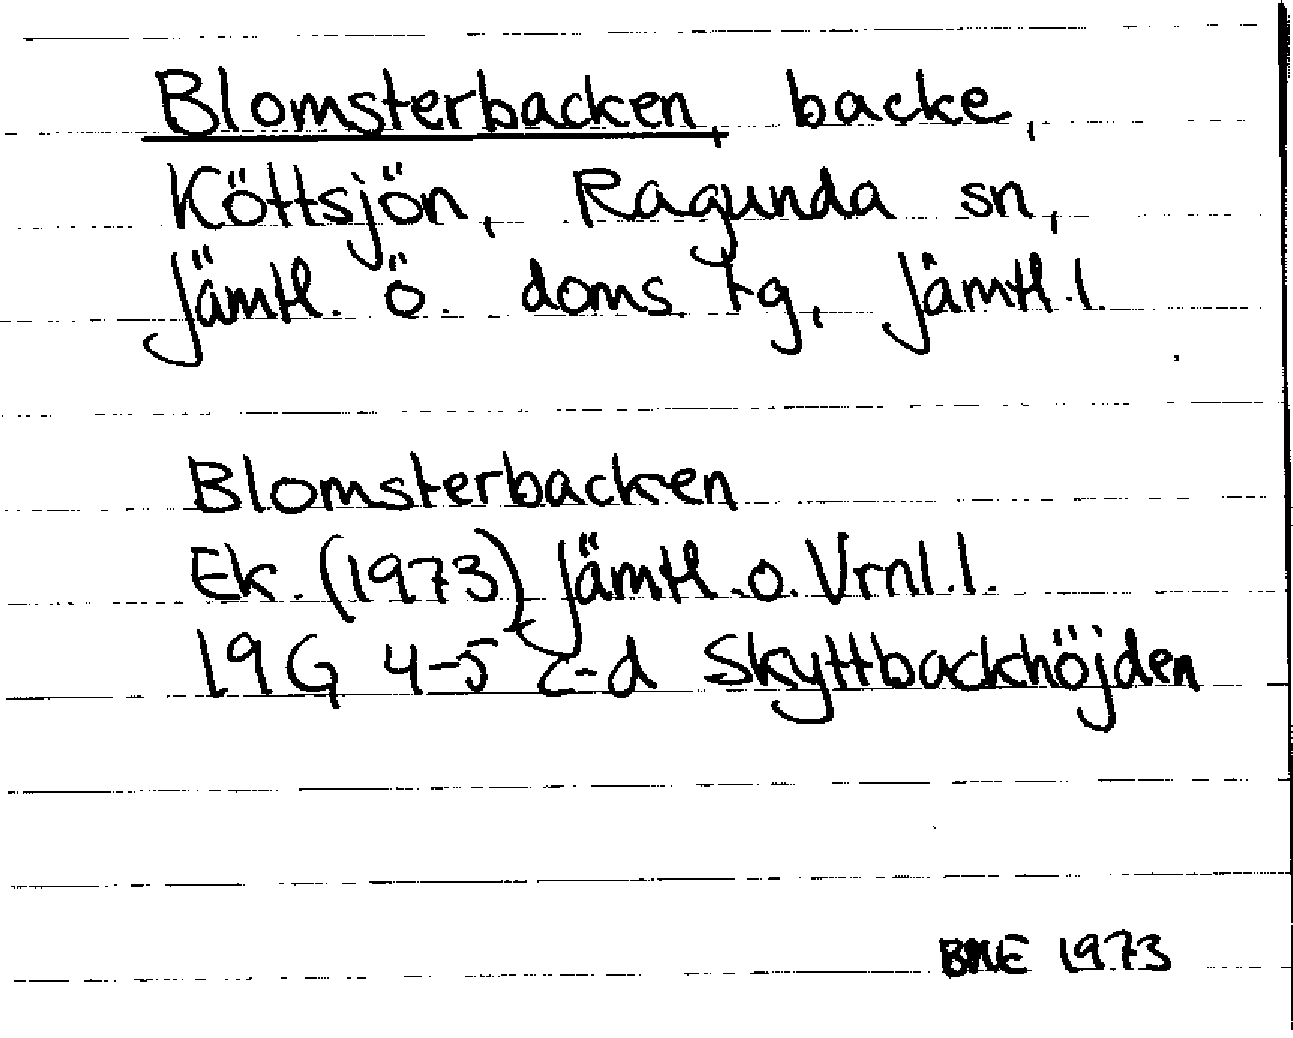 Blomsterbacken, backe,
Köttsjön, Ragunda sn,
Jämtl. ö. doms. tg, Jämtl. l.
Blomsterbacken
Ek. (1973) Jämtl. o. Vrnl. l.
19G 4-5 c-d Skyttbackhöjden
BNE 1973